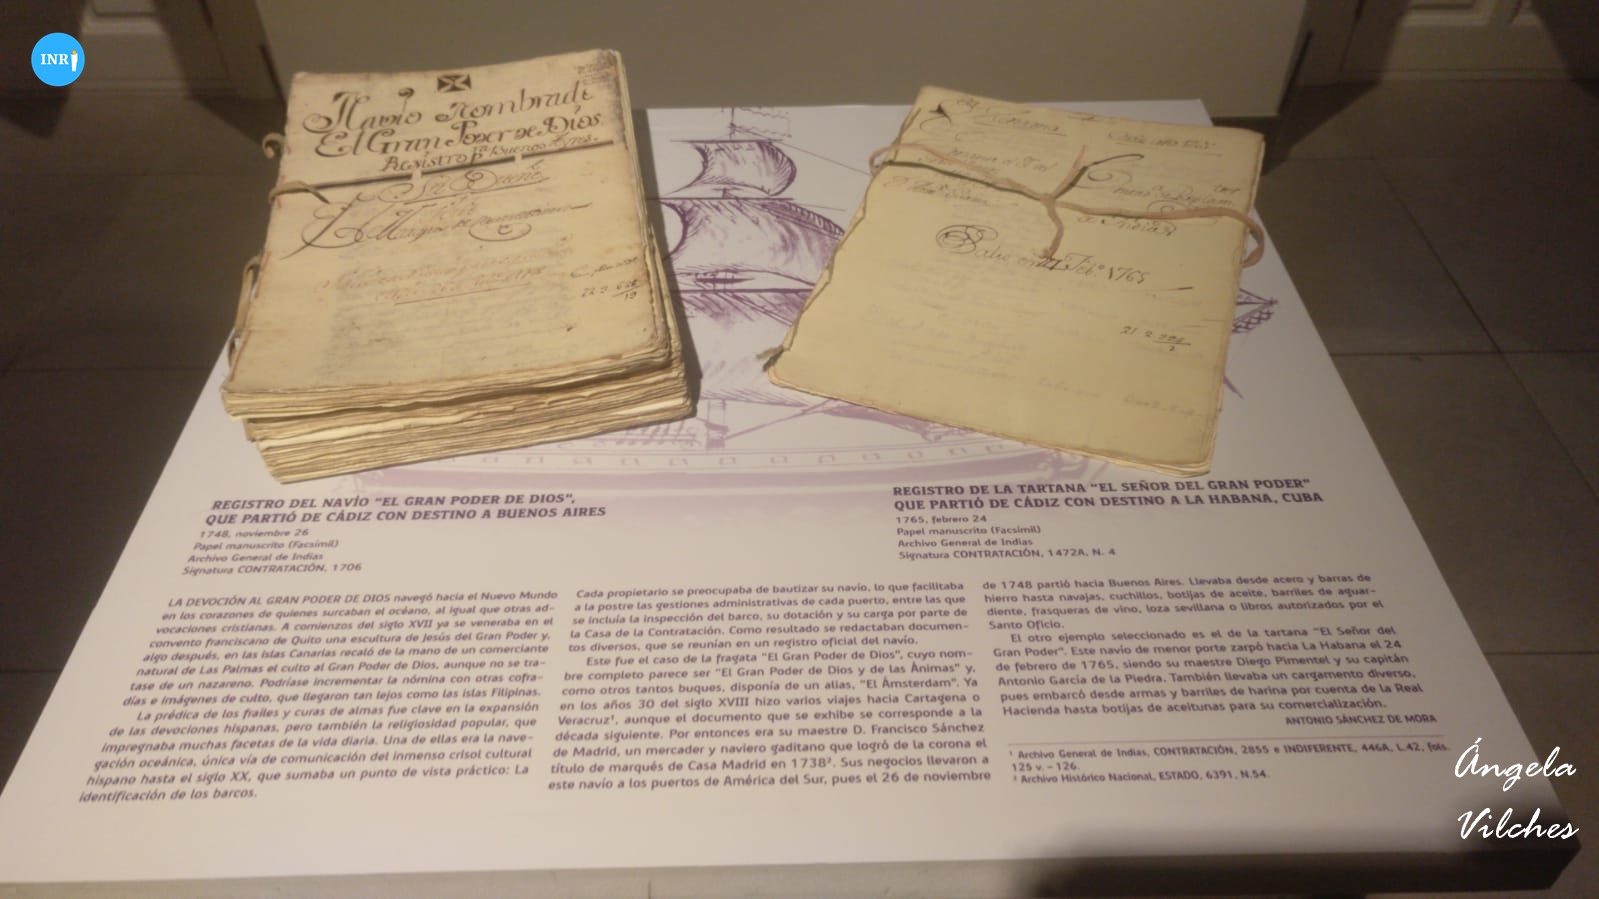 INRI
Navio Nombrado
El Gran Poder de Dios
Registro pª Buenos Ayres
Salio en 24 Febº 1765
REGISTRO DEL NAVÍO "EL GRAN PODER DE DIOS",
QUE PARTIÓ DE CÁDIZ CON DESTINO A BUENOS AIRES
1748, noviembre 26
Papel manuscrito (Facsímil)
Archivo General de Indias
Signatura CONTRATACIÓN, 1706
REGISTRO DE LA TARTANA "EL SEÑOR DEL GRAN PODER"
QUE PARTIÓ DE CÁDIZ CON DESTINO A LA HABANA, CUBA
1765, febrero 24
Papel manuscrito (Facsímil)
Archivo General de Indias
Signatura CONTRATACIÓN, 1472A, N. 4
LA DEVOCIÓN AL GRAN PODER DE DIOS navegó hacia el Nuevo Mundo
en los corazones de quienes surcaban el océano, al igual que otras ad-
vocaciones cristianas. A comienzos del siglo XVII ya se veneraba en el
convento franciscano de Quito una escultura de Jesús del Gran Poder y,
algo después, en las islas Canarias recaló de la mano de un comerciante
natural de Las Palmas el culto al Gran Poder de Dios, aunque no se tra-
tase de un nazareno. Podríase incrementar la nómina con otras cofra-
días e imágenes de culto, que llegaron tan lejos como las islas Filipinas.
La prédica de los frailes y curas de almas fue clave en la expansión
de las devociones hispanas, pero también la religiosidad popular, que
impregnaba muchas facetas de la vida diaria. Una de ellas era la nave-
gación oceánica, única vía de comunicación del inmenso crisol cultural
hispano hasta el siglo XX, que sumaba un punto de vista práctico: La
identificación de los barcos.
Cada propietario se preocupaba de bautizar su navío, lo que facilitaba
a la postre las gestiones administrativas de cada puerto, entre las que
se incluía la inspección del barco, su dotación y su carga por parte de
la Casa de la Contratación. Como resultado se redactaban documen-
tos diversos, que se reunían en un registro oficial del navío.
Este fue el caso de la fragata "El Gran Poder de Dios", cuyo nom-
bre completo parece ser "El Gran Poder de Dios y de las Ánimas" y,
como otros tantos buques, disponía de un alias, "El Ámsterdam". Ya
en los años 30 del siglo XVIII hizo varios viajes hacia Cartagena o
Veracruz¹, aunque el documento que se exhibe se corresponde a la
década siguiente. Por entonces era su maestre D. Francisco Sánchez
de Madrid, un mercader y naviero gaditano que logró de la corona el
título de marqués de Casa Madrid en 1738². Sus negocios llevaron a
este navío a los puertos de América del Sur, pues el 26 de noviembre
de 1748 partió hacia Buenos Aires. Llevaba desde acero y barras de
hierro hasta navajas, cuchillos, botijas de aceite, barriles de aguar-
diente, frasqueras de vino, loza sevillana o libros autorizados por el
Santo Oficio.
El otro ejemplo seleccionado es el de la tartana "El Señor del
Gran Poder". Este navío de menor porte zarpó hacia La Habana el 24
de febrero de 1765, siendo su maestre Diego Pimentel y su capitán
Antonio García de la Piedra. También llevaba un cargamento diverso,
pues embarcó desde armas y barriles de harina por cuenta de la Real
Hacienda hasta botijas de aceitunas para su comercialización.
ANTONIO SÁNCHEZ DE MORA
¹ Archivo General de Indias, CONTRATACIÓN, 2855 e INDIFERENTE, 446A, L.42, fols.
125 v. – 126.
² Archivo Histórico Nacional, ESTADO, 6391, N.54.
Ángela
Vilches